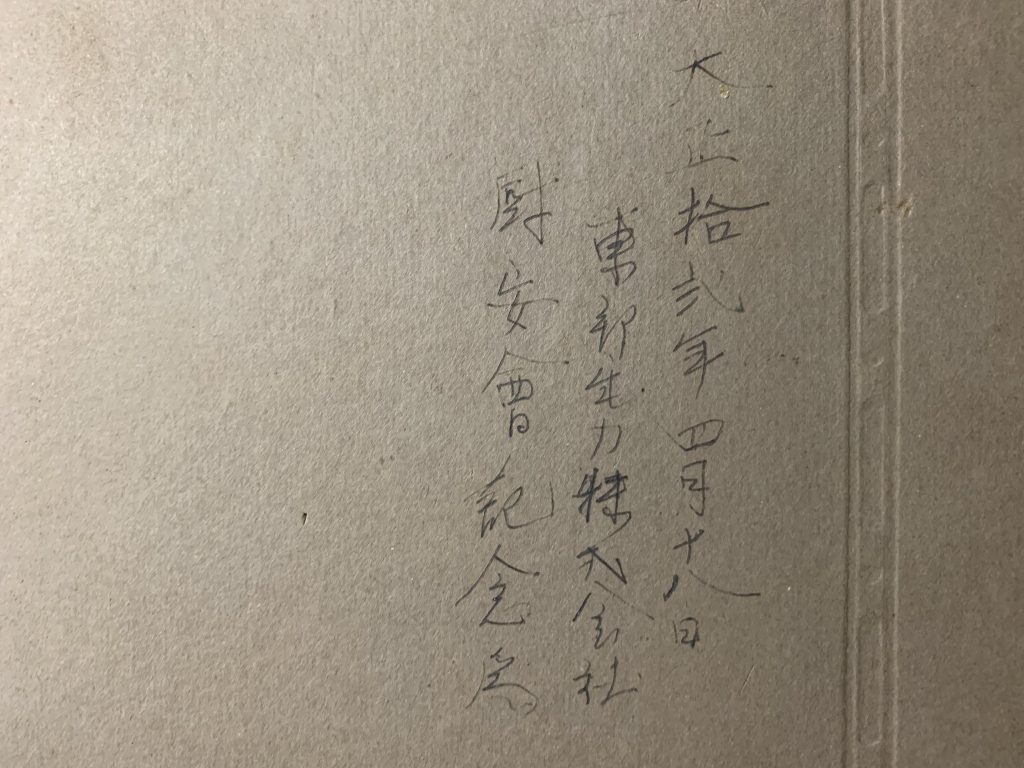 大正拾弐年四月十八日
東邦電力株式会社
尉安會記念